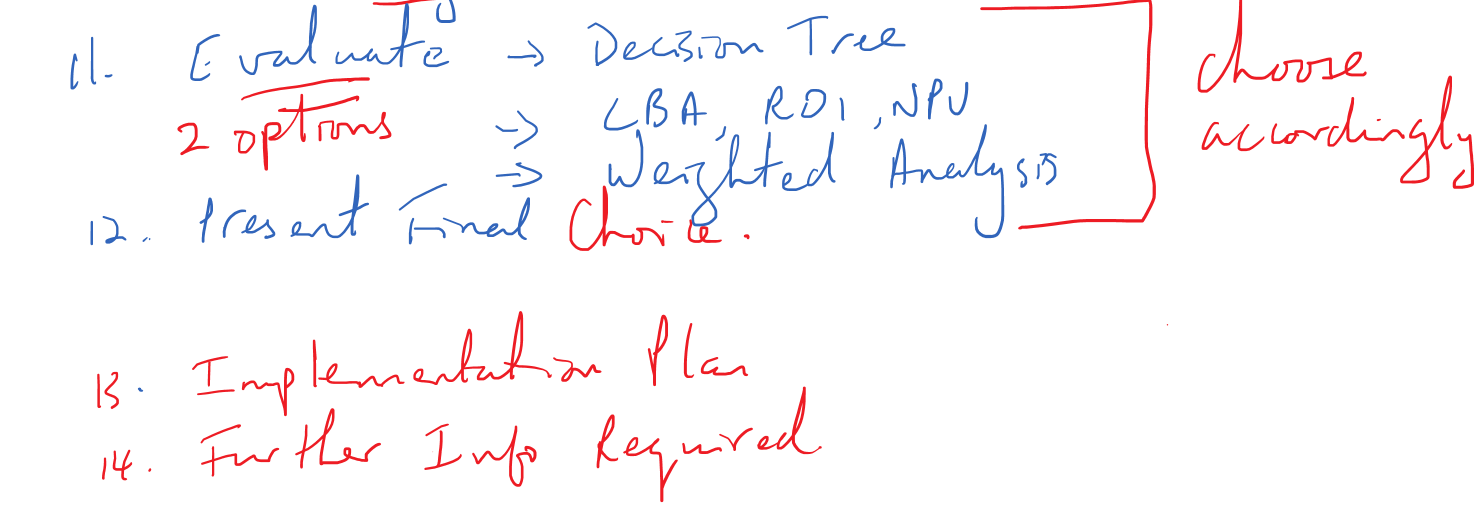 11. Evaluate → Decision Tree
2 options → CBA, ROI, NPV
→ Weighted Analysis
choose
accordingly
12. Present Final Choice.
13. Implementation Plan
14. Further Info Required